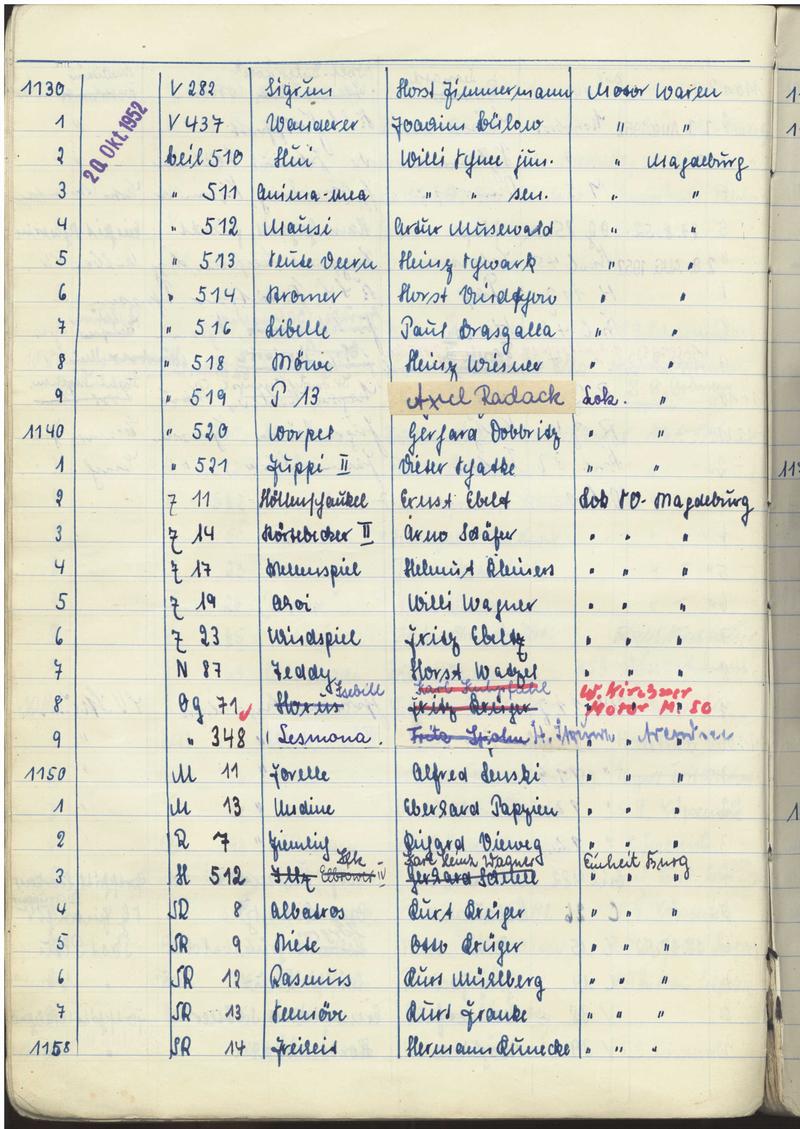 1130 V 282 Sigrun Horst Zimmermann Motor Waren
20. Okt. 1952
1 V 437 Wanderer Joachim Bülow " "
2 beil 510 Hui Willi jun. " Magdeburg
3 " 511 Anima-mea " " sen. " "
4 " 512 Mausi Artur Musewald " "
5 " 513 Deern Heinz " "
6 " 514 Horst " "
7 " 516 Libelle Paul Drasgalla " "
8 " 518 Möwi Heinz Wiesner " "
9 " 519 P 13 Axel Radack Lok. "
1140 " 520 Gerhard Dobbritz " "
1 " 521 Juppi II Dieter " "
2 Z 11 Höllenschaukel Ernst Ebelt Lok Magdeburg
3 Z 14 II Arno Schäfer " " "
4 Z 17 Wellenspiel Helmut Kleiners " " "
5 Z 19 Willi Wagner " " "
6 Z 23 Windspiel Fritz Ebeltz " " "
7 N 87 Teddy Horst Watzel " " "
8 Og 71 Horus Fritz Krüger W. Kirchner
Motor Mi. 50
9 " 348 Lesmona. Fritz " "
1150 M 11 Forelle Alfred Lenski " " "
1 M 13 Undine Eberhard Papzien " " "
2 R 7 Ziemlich Richard Vieweg " " "
3 H 512 Iltz Elbtower IV Karl Heinz Wagner Einheit Burg
Gerhard " " "
4 SR 8 Albatros Kurt Krüger " " "
5 SR 9 Niete Otto Krüger " " "
6 SR 12 Rasmuss Kurt Mühlberg " " "
7 SR 13 Seemöve Kurt Franke " " "
1158 SR 14 Freiheit Hermann Kunecke " " "